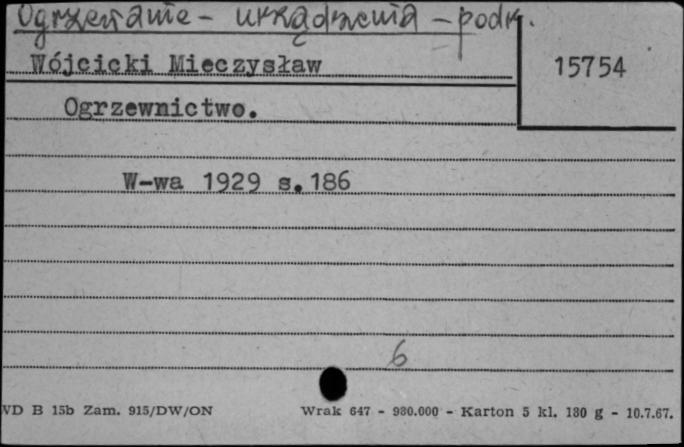 Ogrzewanie - urządzenia - podr.
Wójcicki Mieczysław
15754
Ogrzewnictwo.
W-wa 1929 s.186
6
WD B 15b Zam. 915/DW/ON Wrak 647 - 980.000 - Karton 5 kl. 180 g - 10.7.67.